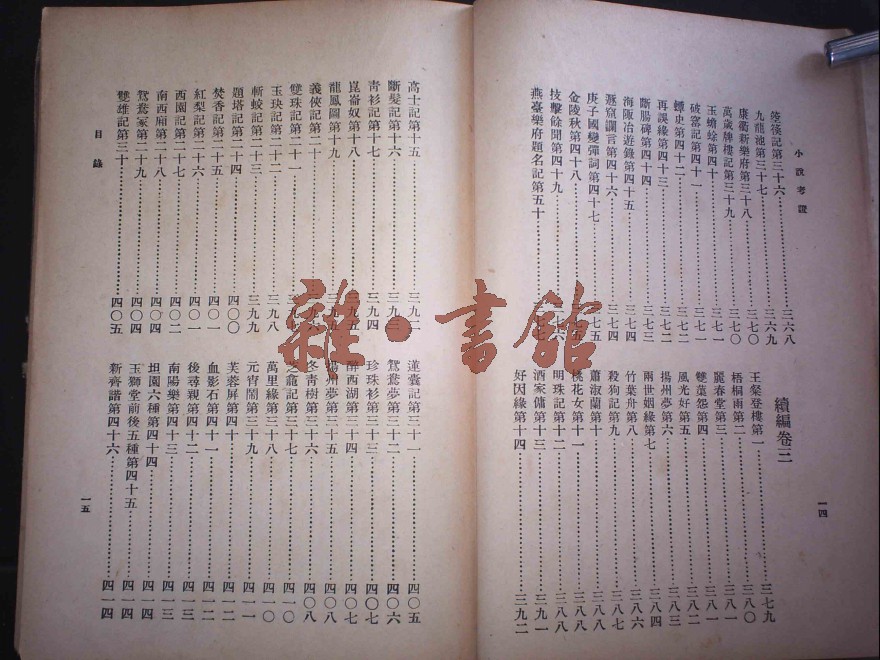 小說考證
箜篌記第三十六……三六八
九龍池第三十七……三六九
康衢新樂府第三十八……三七〇
萬歲牌樓記第三十九……三七〇
玉蟾蜍第四十……三七一
破窰記第四十一……三七一
蟫史第四十二……三七二
再誤緣第四十三……三七二
斷腸碑第四十四……三七三
海陬冶遊錄第四十五……三七四
遯窟讕言第四十六……三七四
庚子國變彈詞第四十七……三七五
金陵秋第四十八
技擊餘聞第四十九
燕臺樂府題名記第五十
續編卷三
王粲登樓第一……三七九
梧桐雨第二……三八〇
麗春堂第三……三八一
雙蕖怨第四……三八一
風光好第五……三八三
揚州夢第六……三八三
兩世姻緣第七……三八四
竹葉舟第八……三八六
殺狗記第九……三八七
蕭淑蘭第十……三八八
桃花女第十一……三八八
明珠記第十二……三八八
酒家傭第十三……三九一
好因緣第十四……三九二
一四
高士記第十五……三九二
斷髮記第十六……三九三
青衫記第十七……三九四
崑崙奴第十八……三九五
龍鳳圖第十九
義俠記第二十
雙珠記第二十一
玉玦記第二十二……三九八
斬蛟記第二十三……三九九
題塔記第二十四……四〇〇
焚香記第二十五……四〇一
紅梨記第二十六……四〇一
西園記第二十七……四〇二
南西廂第二十八……四〇四
鴛鴦冢第二十九……四〇四
雙雄記第三十……四〇五
目錄
蓮囊記第三十一……四〇五
鴛鴦夢第三十二……四〇六
珍珠衫第三十三……四〇七
醉西湖第三十四……四〇七
揚州夢第三十五……四〇八
冬青樹第三十六……四〇八
芝龕記第三十七……四一〇
萬里緣第三十八……四一〇
元宵鬧第三十九……四一一
芙蓉屏第四十……四一二
血影石第四十一……四一二
後尋親第四十二……四一三
南陽樂第四十三……四一三
坦園六種第四十四……四一四
玉獅堂前後五種第四十五……四一四
新齊諧第四十六……四一四
一五
雜·書館